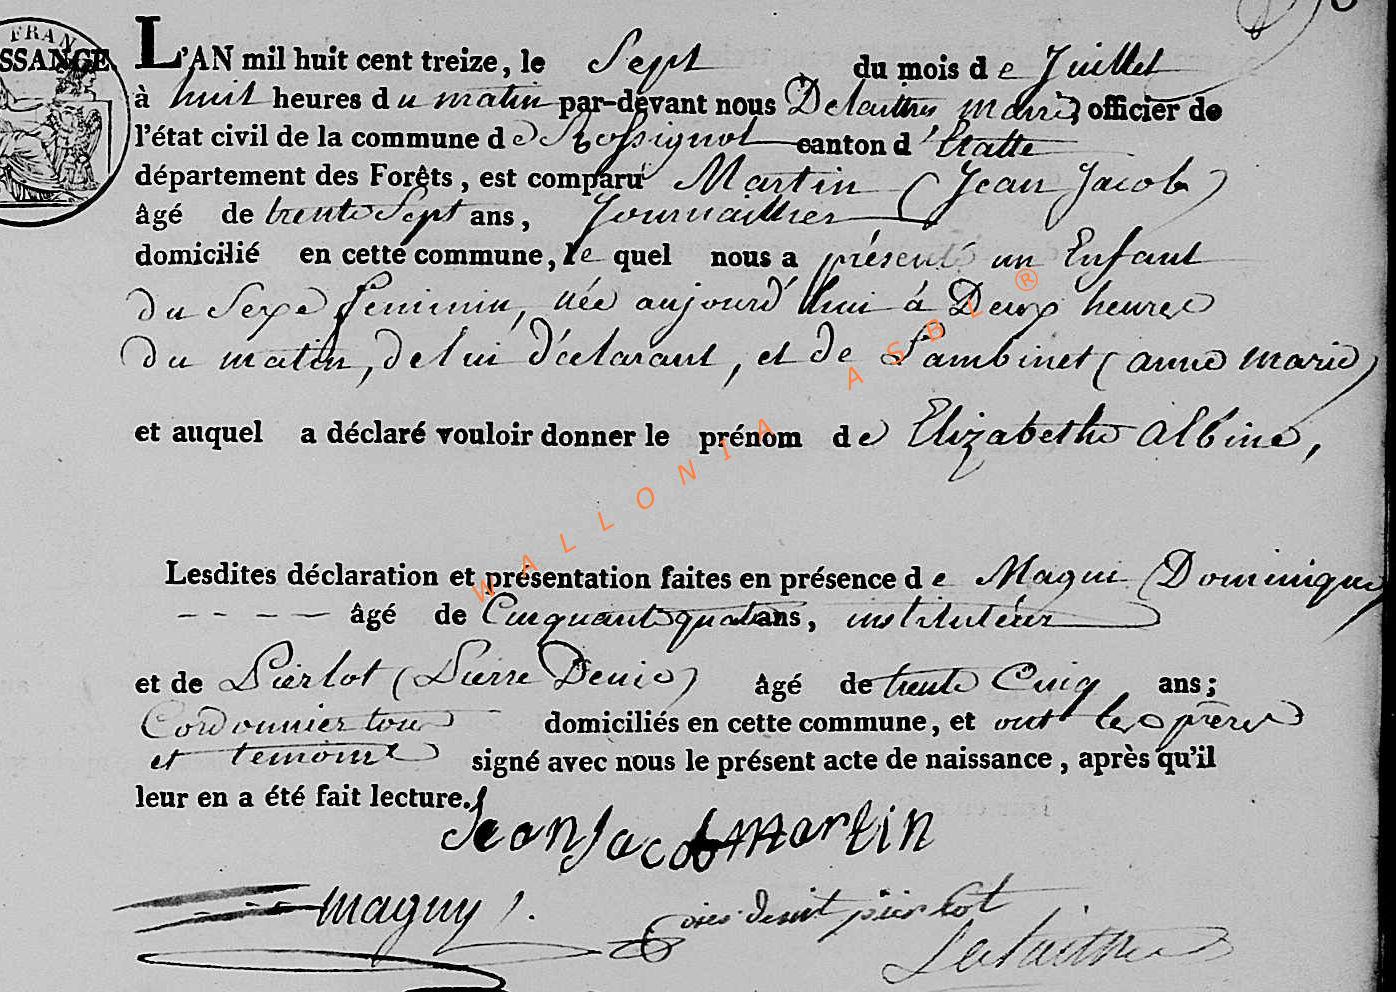 FRAN
SSANCE.
L'AN mil huit cent treize, le Sept du mois de Juillet
à huit heures du matin par-devant nous Delaittres maire, officier de
l'état civil de la commune de Rossignol canton d'Etalle
département des Forêts, est comparu Martin (Jean Jacob)
âgé de trente Sept ans, Journaillier
domicilié en cette commune, le quel nous a présenté un Enfant
du Sexe feminin, née aujourd'hui à Deux heures
du matin, de lui déclarant, et de Lambinet (anne marie)
et auquel a déclaré vouloir donner le prénom de Elizabethe albine,
Lesdites déclaration et présentation faites en présence de Magui (Dominique)
âgé de Cinquante quatre ans, instituteur
et de Pierlot (Pierre Denis) âgé de trente Cinq ans;
Cordonnier tous domiciliés en cette commune, et ont les pères
et temoins signé avec nous le présent acte de naissance, après qu'il
leur en a été fait lecture.
Jean Jacob Martin
Maguy
pierlot
Delaittres
WALLONIA ASBL ®